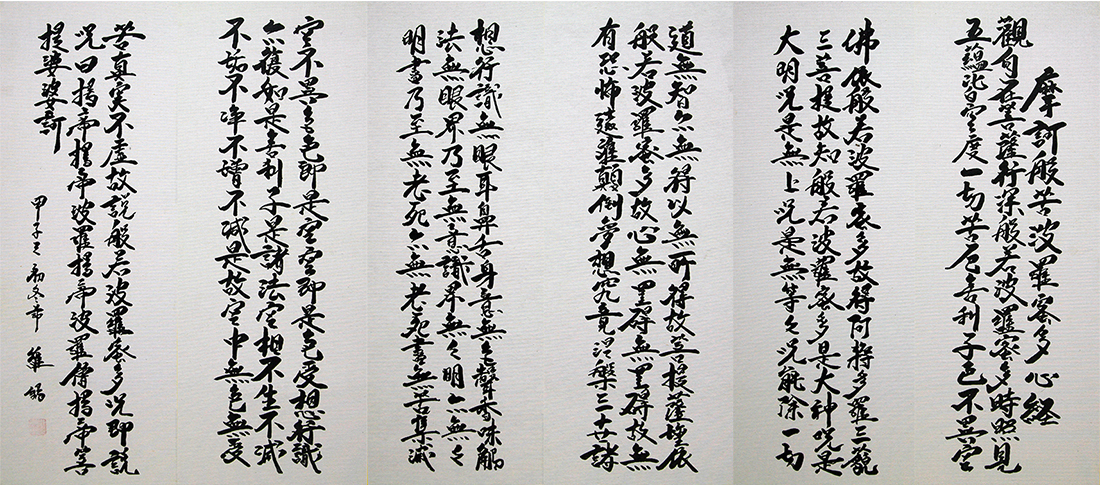 摩訶般若波羅蜜多心経
觀自在菩薩行深般若波羅蜜多時照見
五蘊皆空度一切苦厄舍利子色不異空
佛依般若波羅蜜多故得阿耨多羅三藐
三菩提故知般若波羅蜜多是大神咒是
大明咒是無上咒是無等々咒能除一切
道無智亦無得以無所得故菩提薩埵依
般若波羅蜜多故心無罣碍無罣碍故無
有恐怖遠離顛倒夢想究竟涅槃三世諸
想行識無眼耳鼻舌身意無色聲香味觸
法無眼界乃至無意識界無々明亦無々
明盡乃至無老死亦無老死盡無苦集滅
空不異色色即是空空即是色受想行識
亦復如是舍利子是諸法空相不生不滅
不垢不净不增不減是故空中無色無受
苦真实不虛故説般若波羅蜜多咒即説
咒曰揭帝揭帝波羅揭帝波羅僧揭帝菩
提娑婆訶
甲子之初冬